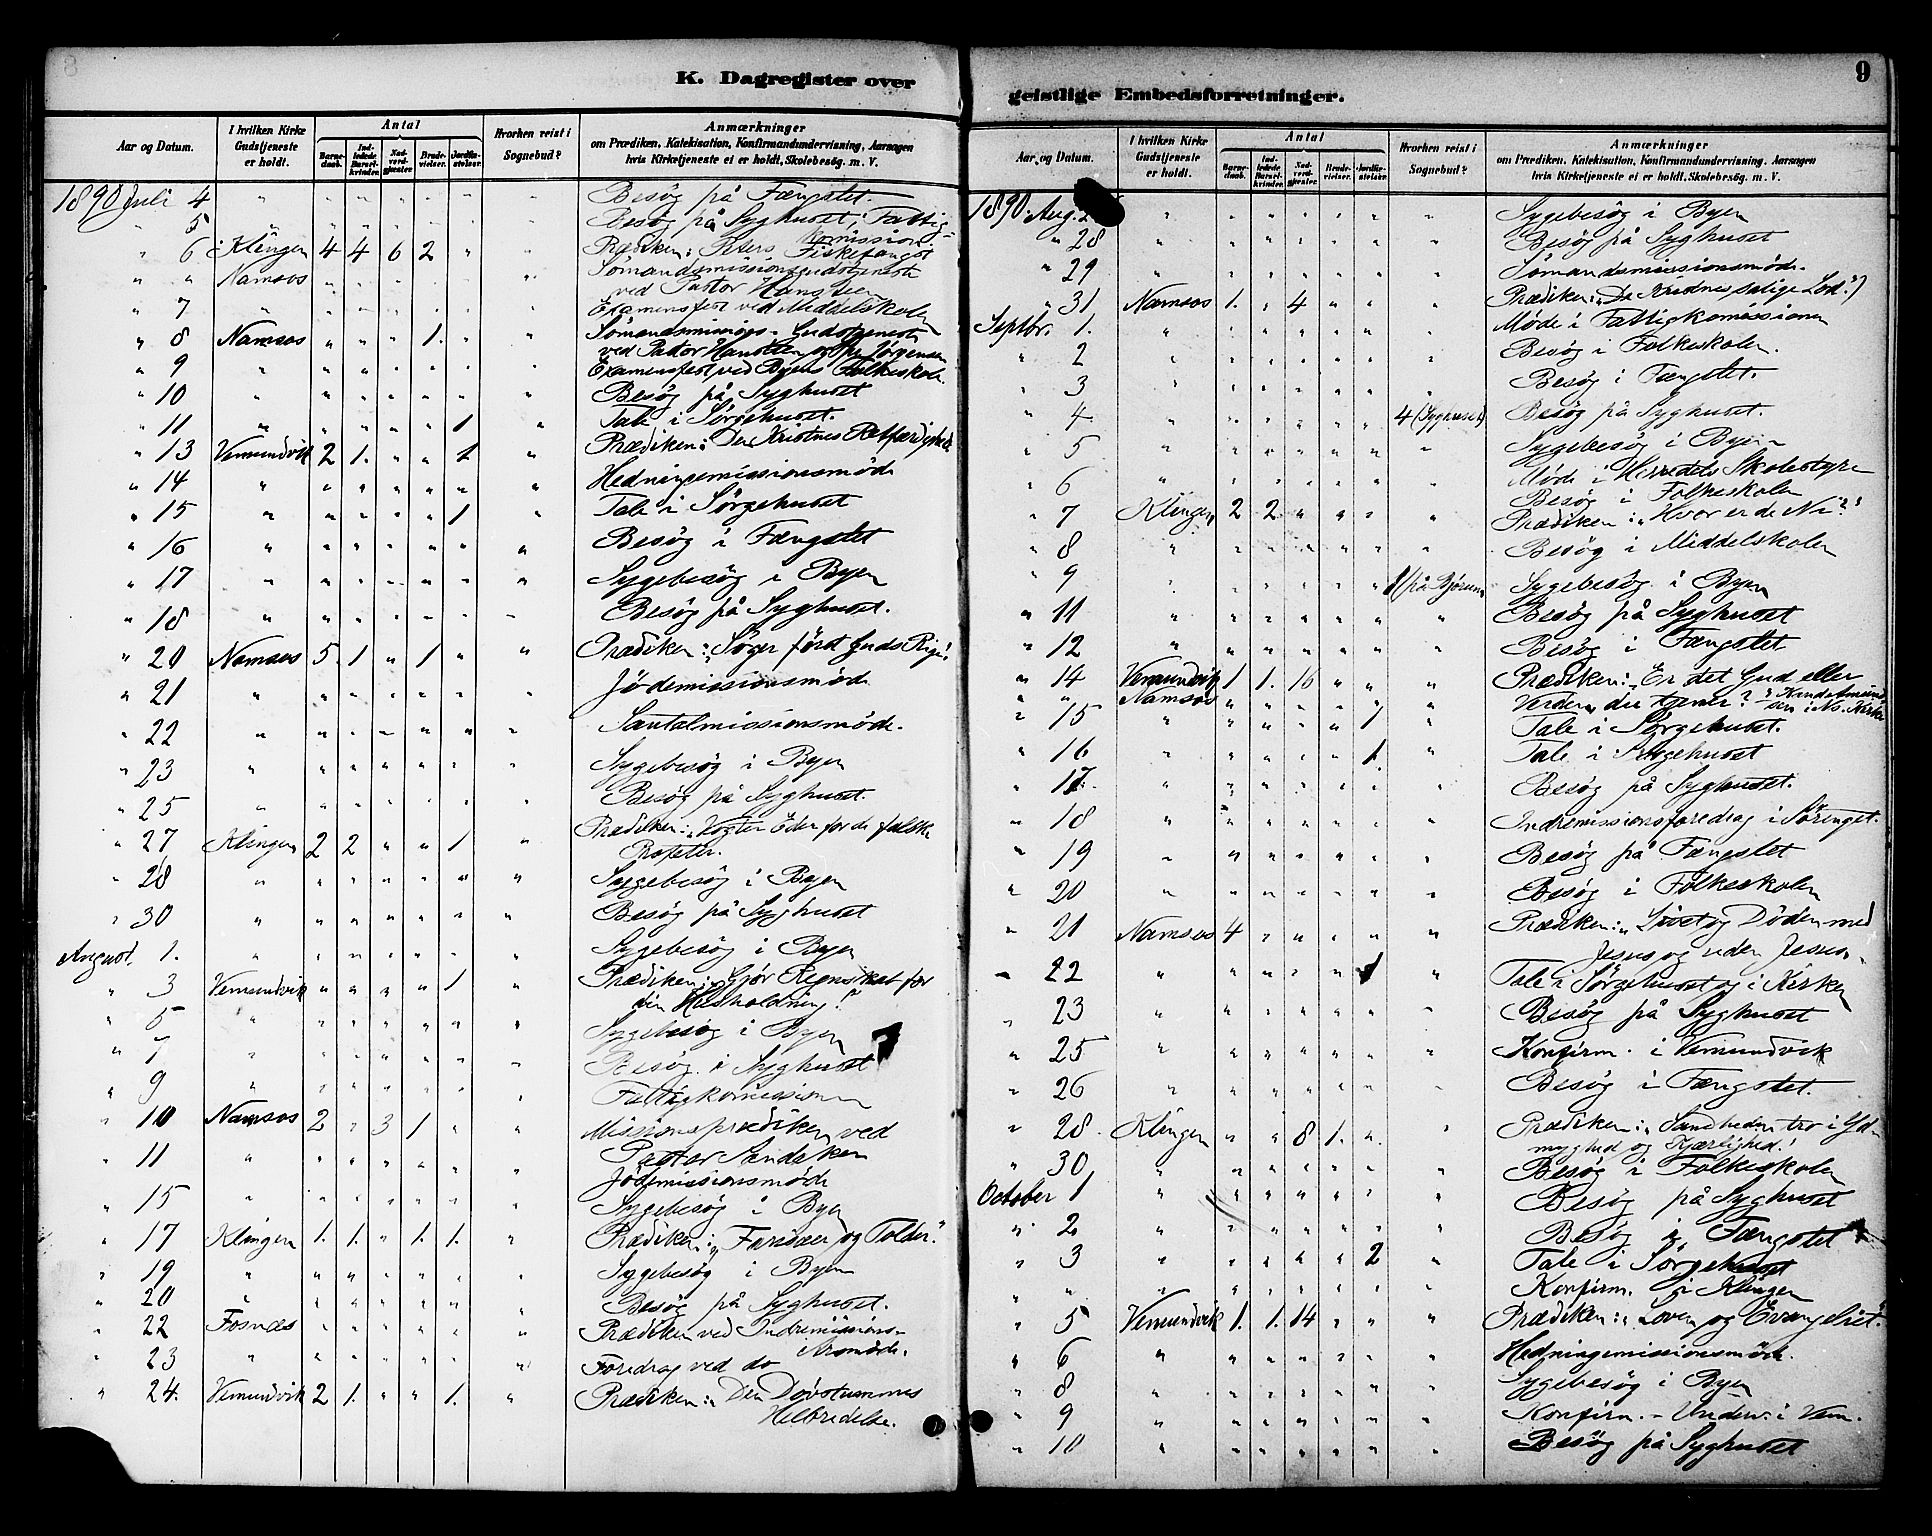 8
K. Dagregister over
Aar og Datum. I hvilken Kirke Gudstjeneste er holdt. Antal Barnedaab. Indledede Barselkvinder. Nadverdgjester Brudevielser. Jordfæstelser. Hvorhen reist i Sognebud? Anmærkninger om Prædiken, Katekisation, Konfirmandundervisning, Aarsagen hvis Kirketjeneste ei er holdt, Skolebesøg. m. V.
1890 Juli 4 " " " " " " " Besøg på Fængslet.
" 5 Besøg på Syghuset, i Fattig-
komission
" 6 Klingen 4 4 6 2 " " Prædiken: Peters Fiskefangst
" " Namsos " " " " " " Sømandsmissionsgudstjeneste
ved Pastor Hansteen
" 7 " " " " " " Examensfest ved Middelskolen
" 8 Namsos " " " 1. " " Sømandsmissions-Gudstjeneste
ved Pastor Hansteen og Jørgensen
" 9 " " " " " " " Examensfest ved Byens Folkeskole
" 10 " " " " " " " Besøg på Syghuset
" 11 " " " " " 1 " Tale i Sørgehuset.
" 13 Vemundvik 2 1. " " 1 " Prædiken: De Kristnes Retfærdighed
" 14 " " " " " " " Hedningemissionsmøde
" 15 " " " " " 1 " Tale i Sørgehuset
" 16 " " " " " " " Besøg i Fængslet
" 17 " " " " " " " Sygebesøg i Byen
" 18 " " " " " " " Besøg på Syghuset.
" 20 Namsos 5 1 " 1 " " Prædiken: "Søger først Guds Rige!
" 21 " " " " " " " Jødemissionsmøde
" 22 " " " " " " " Santalmissionsmøde.
" 23 " " " " " " " Sygebesøg i Byen
" 25 " " " " " " " Besøg på Syghuset.
" 27 Klingen 2 2 " " 1 " Prædiken: "Vogter Eder for de falske
Profeter.
" 28 " " " " " " " Sygebesøg i Byen
" 30 " " " " " " " Besøg på Syghuset
August. 1. " " " " " " " Sygebesøg i Byen
" 3 Vemundvik " " " " 1 " Prædiken: "Gjør Regnskab for
din Husholdning!"
" 5 " " " " " " " Sygebesøg i Byen
" 7 " " " " " " " Besøg i Syghuset
" 9 " " " " " " " Fattigkomissionen
" 10 Namsos 2 " 3 1 " " Missionsprædiken ved
Pastor Sandaker
" 11 " " " " " " " Jødemissionsmøde
" 15 " " " " " " " Sygebesøg i Byen
" 17 Klingen 1. 1. " 1. 1. " Prædiken: "Farisæer og Tolder."
" 19 " " " " " " " Sygebesøg i Byen
" 20 " " " " " " " Besøg på Syghuset.
" 22 Fosnæs " " " " " " Prædiken ved Indremissions-
Årsmøde.
" 23 " " " " " " " Foredrag ved do
" 24. Vemundvik 2 1. " " 1. " Prædiken: "Den Døvstummes
Helbredelse.
geistlige Embedsforretninger.
9
Aar og Datum. I hvilken Kirke Gudstjeneste er holdt. Antal Barnedaab. Indledede Barselkvinder. Nadverdgjester Brudevielser. Jordfæstelser. Hvorhen reist i Sognebud? Anmærkninger om Prædiken, Katekisation, Konfirmandundervisning, Aarsagen hvis Kirketjeneste ei er holdt, Skolebesøg. m. V.
1890. Aug. " " " " " " " Sygebesøg i Byen
" 28 " " " " " " " Besøg på Syghuset
" 29 " " " " " " " Sømandsmissionsmøde.
" 31 Namsos 1. " 4 " " " Prædiken: "De Kristnes salige Lod."
Septbr. 1. " " " " " " " Møde i Fattigkomissionen
" 2 " " " " " " " Besøg i Folkeskolen.
" 3 " " " " " " " Besøg i Fængslet.
" 4 " " " " " " 4 (Syghuset) Besøg på Syghuset.
" 5 " " " " " " " Sygebesøg i Byen
" 6 " " " " " " " Møde i Herreds Skolestyre
Besøg i Folkeskolen
" 7 Klingen 2 2 " " " " Prædiken: "Hvor er de Ni?"
" 8 " " " " " " " Besøg i Middelskolen
" 9 " " " " " " 1 (på Bjørum) Sygebesøg i Byen
" 11 " " " " " " " Besøg på Syghuset
" 12 " " " " " " " Besøg i Fængslet
" 14 Vemundvik 1 1. 16 " " " Prædiken: "Er det Gud eller
" " Namsos " " " " " " Verden du tjener?" i Ns. Kirke
" 15 " " " " " 1 " Tale i Sørgehuset.
" 16 " " " " " 1. " Tale i Sørgehuset
" 17. " " " " " " " Besøg på Syghuset.
" 18 " " " " " " " Indremissionsforedrag i Spillum.
" 19 " " " " " " " Besøg på Fængslet
" 20 " " " " " " " Besøg i Folkeskolen
" 21 Namsos 4 " " " " " Prædiken: "Livet og Døden med
Jesus og uden Jesus.
" 22 " " " " " 1 " Tale i Sørgehuset og i Kirken
" 23 " " " " " " " Besøg på Syghuset
" 25 " " " " " " " Konfirm. i Vemundvik
" 26 " " " " " " " Besøg i Fængslet.
" 28. Klingen " " 8 1. " " Prædiken: "Sandheden tro i Yd-
myghed og Kjærlighed!
" 30 " " " " " " " Besøg i Folkeskolen
October 1 " " " " " " " Besøg på Syghuset
" 2 " " " " " " " Besøg i Fængslet
" 3 " " " " " 2 " Tale i Sørgehuset
" " " " " " " " " Konfirm. i Klingen
" 5 Vemundvik 1. 1. 14 " " " Prædiken: "Loven og Evangeliet."
" 6 " " " " " " " Hedningemissionsmøde.
" 8 " " " " " " " Sygebesøg i Byen
" 9 " " " " " " " Konfirm.-Underv. i Vem.
" 10 " " " " " " " Besøg på Syghuset